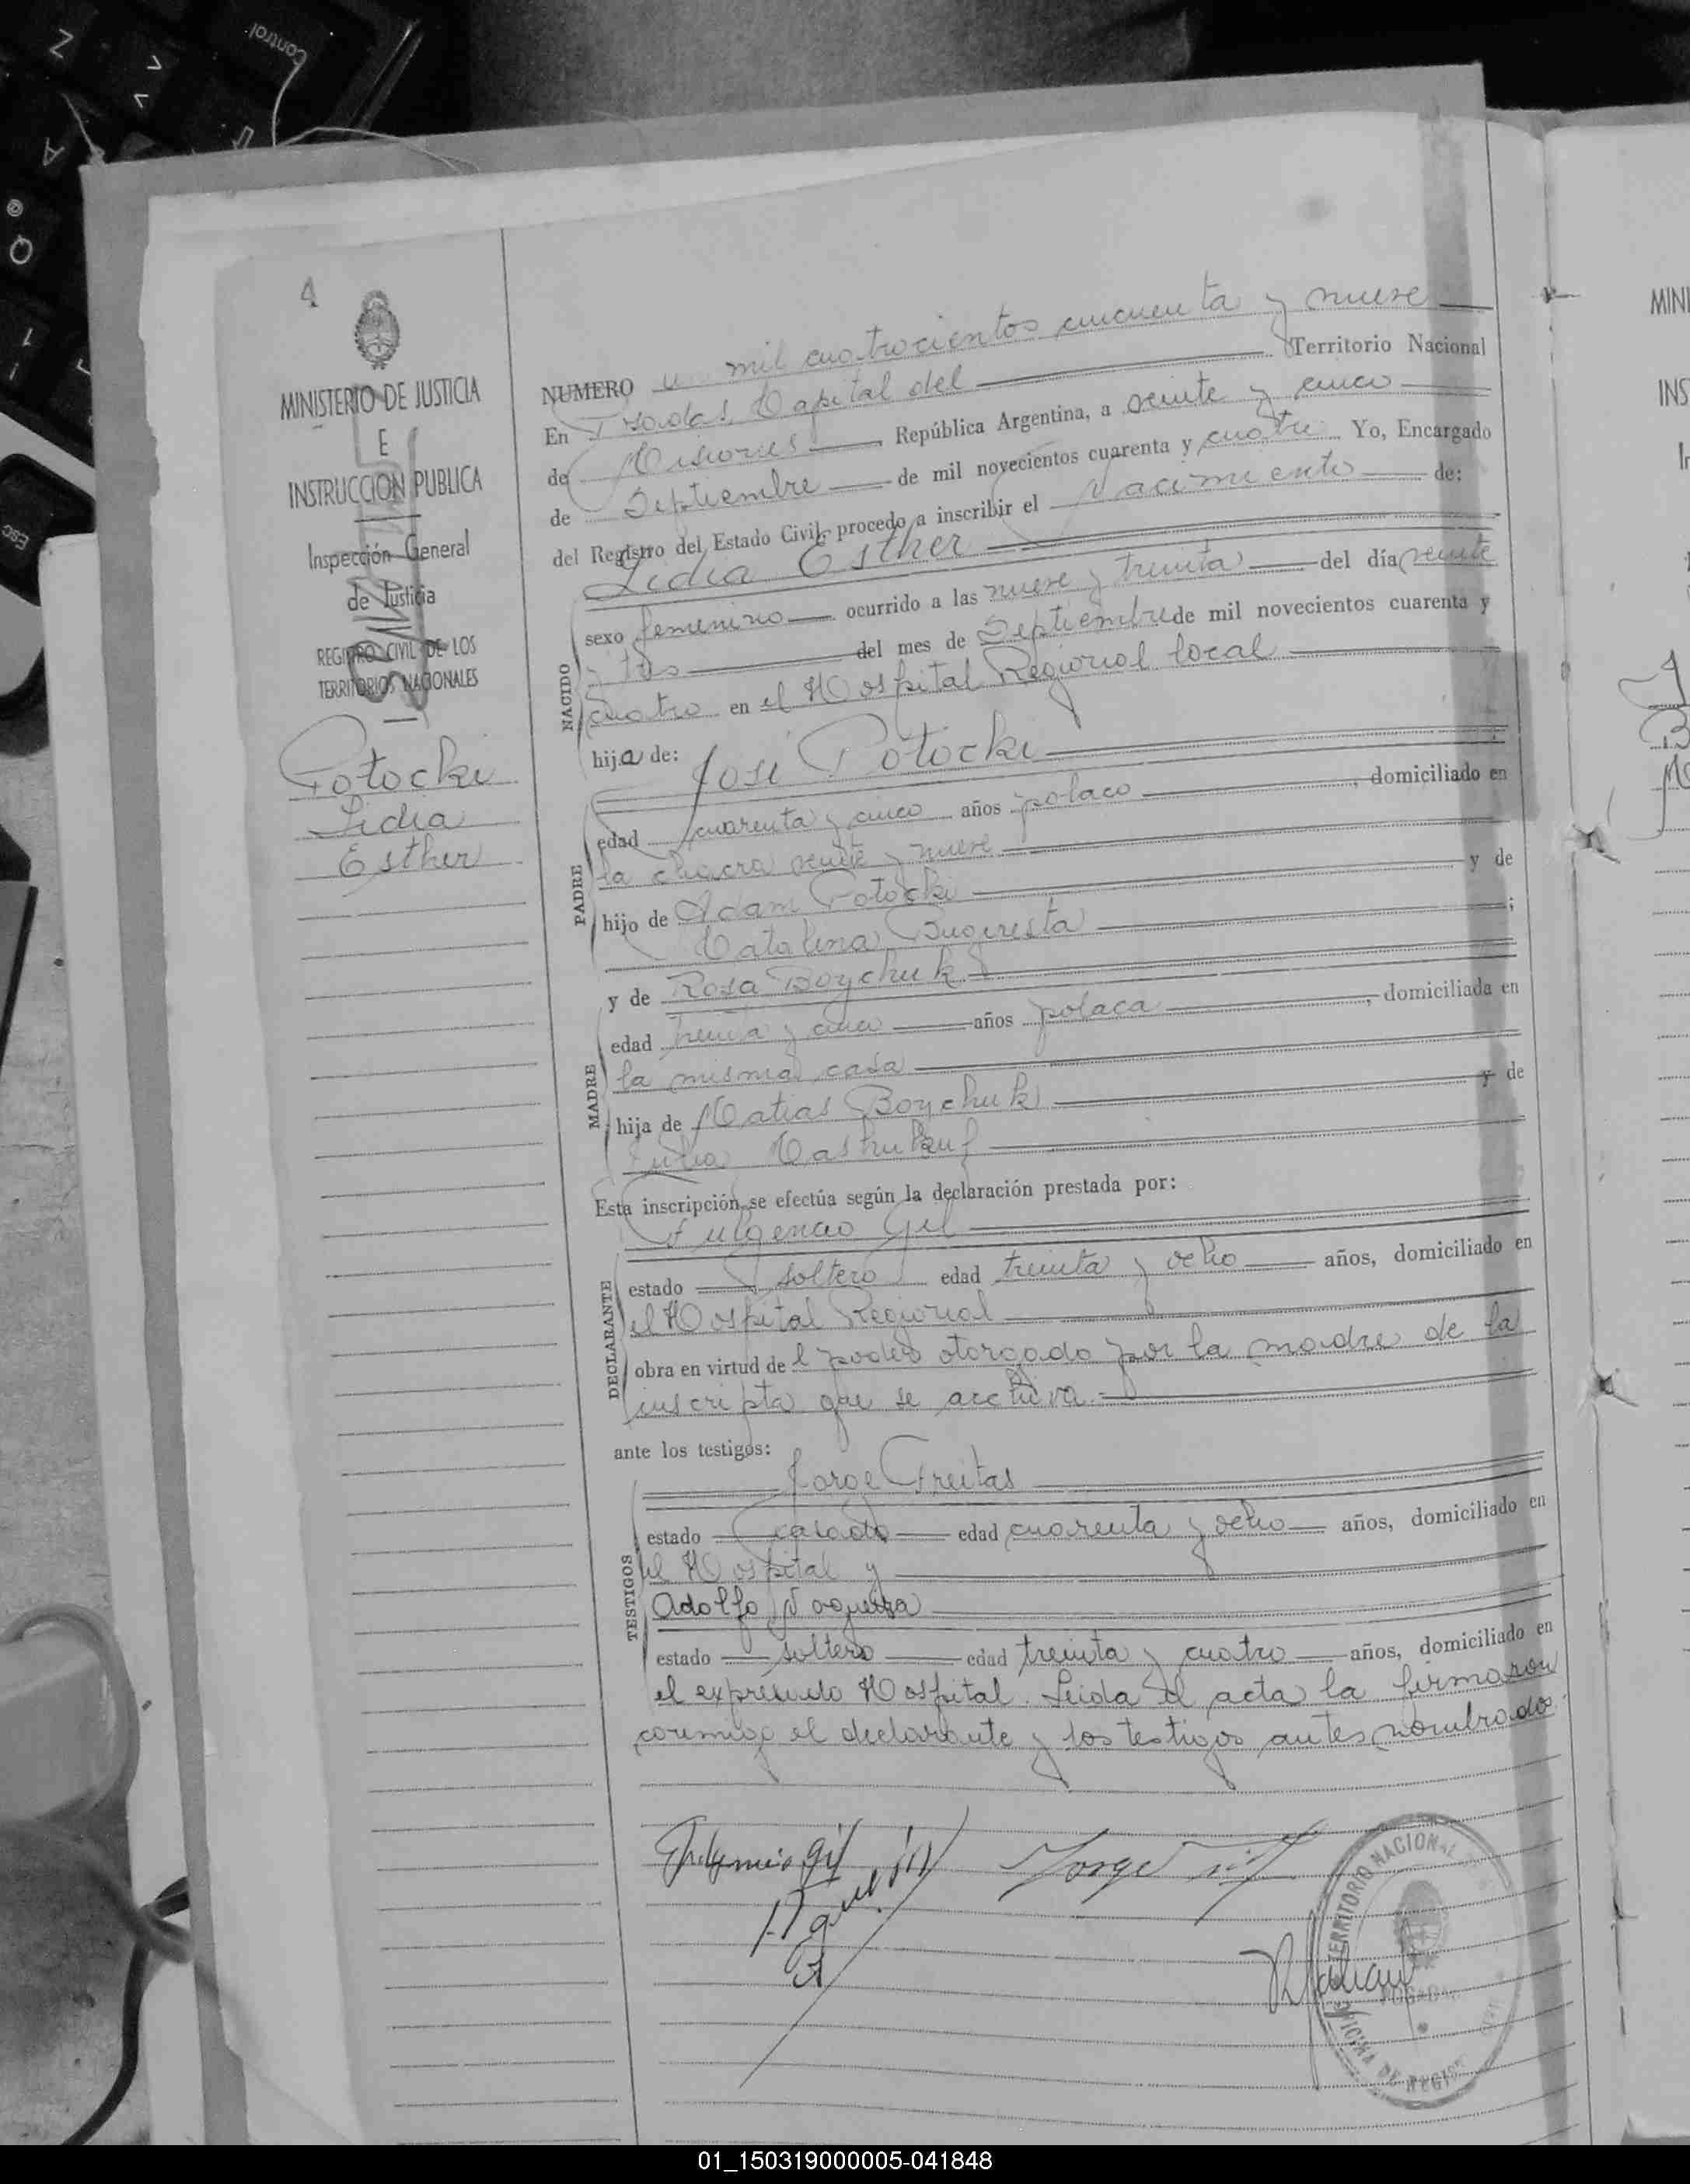 Control
Z
A
Q
Esc
4
MINISTERIO DE JUSTICIA
E
INSTRUCCION PUBLICA
Inspección General
de Justicia
REGISTRO CIVIL DE LOS
TERRITORIOS NACIONALES
Potocki
Lidia
Esther
NUMERO mil cuatrocientos cincuenta y nueve
En Posadas, Capital del Territorio Nacional
de Misiones, República Argentina, a veinte y cinco
de Septiembre de mil novecientos cuarenta y cuatro Yo, Encargado
del Registro del Estado Civil, procedo a inscribir el Nacimiento de:
Lidia Esther
NACIDO
sexo femenino ocurrido a las nueve y treinta del día veinte
y tres del mes de Septiembre de mil novecientos cuarenta y
cuatro en el Hospital Regional local
hija de: José Potocki
PADRE
edad cuarenta y cinco años polaco, domiciliado en
la chacra veinte y nueve
hijo de Adam Potocki y de
Catalina ;
y de Rosa Boychuk
MADRE
edad treinta y cinco años polaca, domiciliada en
la misma casa
hija de Matias Boychuk y de
Esta inscripción se efectúa según la declaración prestada por:
Fulgencio Gil
DECLARANTE
estado soltero edad treinta y ocho años, domiciliado en
el Hospital Regional
obra en virtud del poder otorgado por la madre de la
inscripta que se archiva.=
ante los testigos:
Jorge Freitas
TESTIGOS
estado casado edad cuarenta y ocho años, domiciliado en
el Hospital y
Adolfo Nogueira
estado soltero edad treinta y cuatro años, domiciliado en
el expresado Hospital. Leida el acta la firmaron
conmigo el declarante y los testigos antes nombrados.
Fulgencio Gil
Jorge
TERRITORIO NACIONAL
POSADAS
OFICINA DE REGIS
MINI
INS
01_150319000005-041848